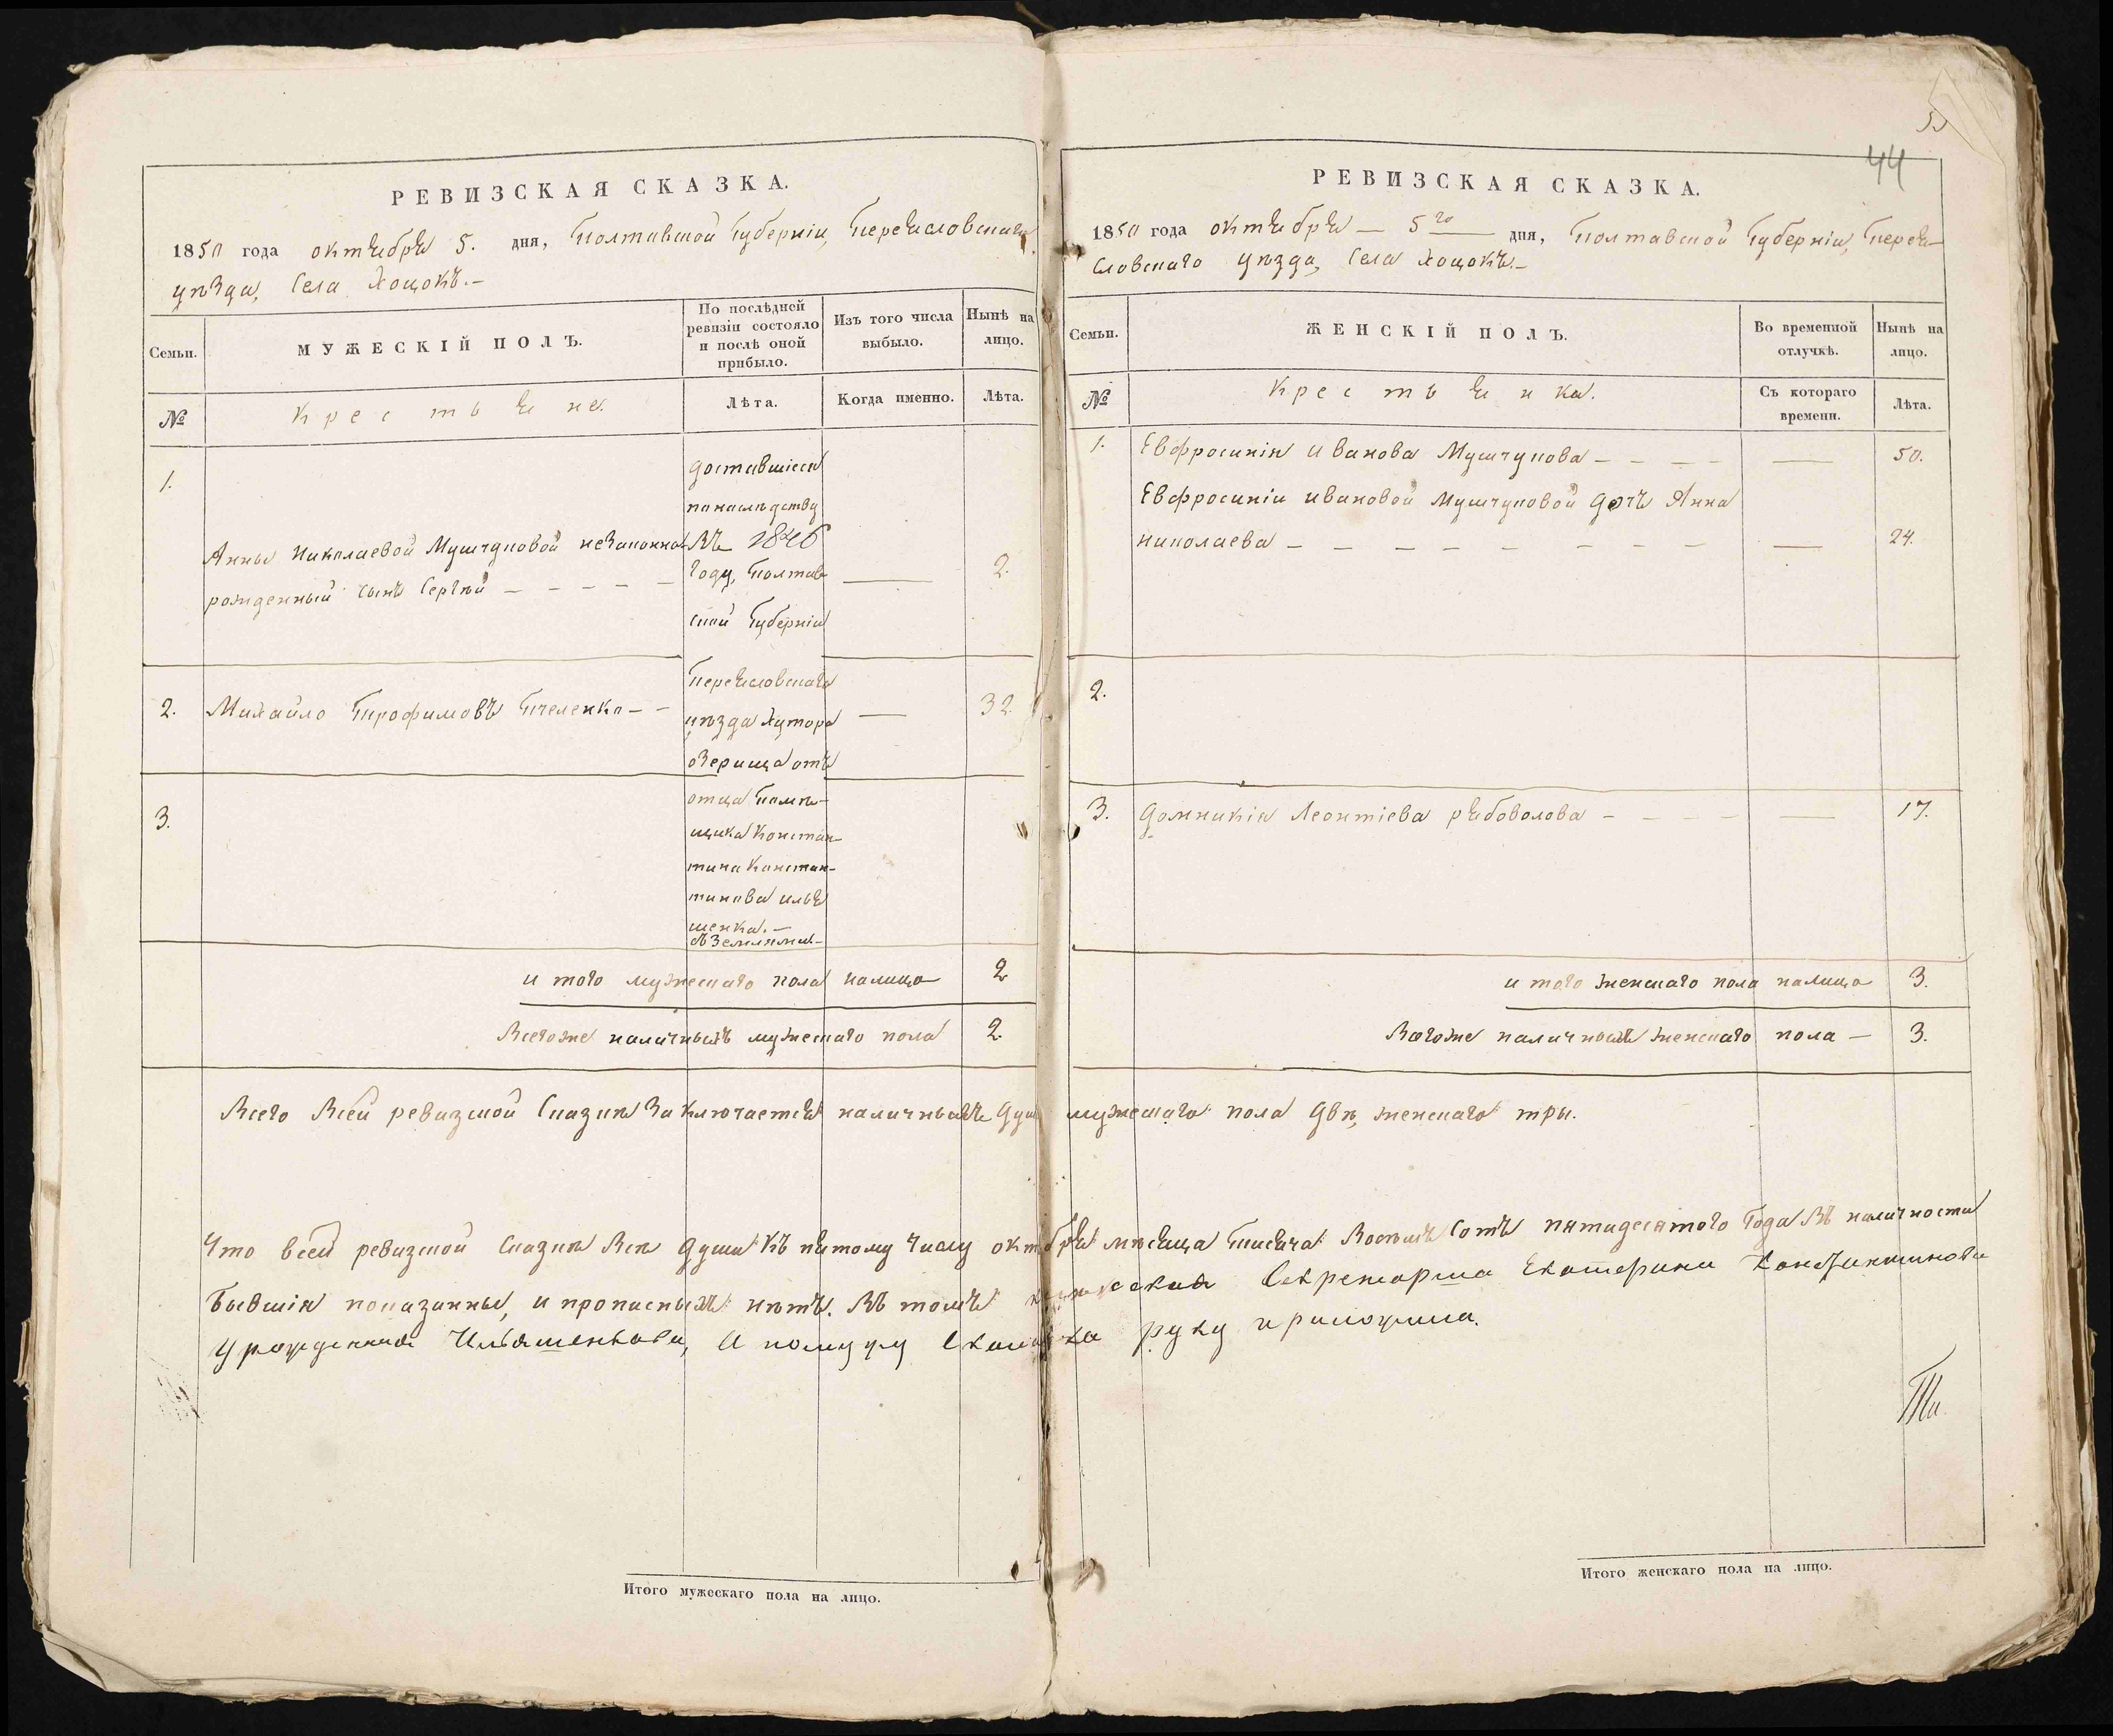 РЕВИЗСКАЯ СКАЗКА.
1850 года октября 5. дня, Полтавской Губерніи, Переяславскаго
уѣзда, Села Хоцокъ.–
Семьи.
МУЖЕСКІЙ ПОЛЪ.
По послѣдней ревизіи состояло и послѣ оной прибыло.
Изъ того числа выбыло.
Нынѣ на лицо.
№
Крестьяне.
Лѣта.
Когда именно.
Лѣта.
1.
Анны Николаевой Мушчуновой незаконно-
рожденный сынъ Сергѣй – – – – –
2.
2. Михайло Трофимовъ Пчеленко – –
32
3.
доставшіеся
по наслѣдству
въ 1846
году, Полтав
ской Губерніи
Переяславскаго
уѣзда Хутора
озерища отъ
отца помѣ–
щика Констан–
тина Констан–
тинова Илья
шенка.–
и того мужескаго пола налицо 2
Всегоже наличныхъ мужескаго пола 2.
Итого мужескаго пола на лицо.
44
РЕВИЗСКАЯ СКАЗКА.
1850 года октября – 5го дня, Полтавской Губерніи, Перея–
словскаго уѣзда, Села Хоцокъ.–
Семьи.
ЖЕНСКІЙ ПОЛЪ.
Во временной отлучкѣ.
Нынѣ на лицо.
№
Крестьянки.
Съ котораго времени.
Лѣта.
1. Евфросинія Иванова Мушчунова – – – – 50.
Евфросиніи Ивановой Мушчуновой дочь Анна
Николаева – – – – – – – – 24.
2.
3. Домникія Леонтіева рябоволова – – – – 17.
и того женскаго пола налицо 3.
Всегоже наличныхъ женскаго пола – 3.
Всего всей ревизской Сказкѣ заключается наличныхъ душ мужескаго пола двѣ, женскаго три.
Что всей ревизской Сказкѣ всѣ души къ пятому числу октября мѣсяца тисяча восемъ сотъ пятидесятого года въ наличности
бывшія показанны, и прописныхъ нѣтъ. Въ томъ Секретарша Екатерина Константинова
урожденная Ильяшенкова, руку приложила.
Итого женскаго пола на лицо.